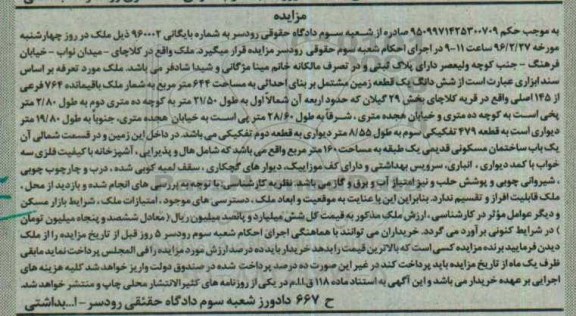 مزایده
به موجب حکم ۹۵۰۹۹۷۱۴۲۵۳۰۰۷۰۹ صادره از شعبه سوم دادگاه حقوقی رودسر به شماره بایگانی ۹۶۰۰۰۲ ذیل ملک در روز چهارشنبه
مورخه ۹۶/۲/۲۷ ساعت ۱۱-۹ در اجرای احکام شعبه سوم حقوقی رودسر مزایده قرار میگیرد. ملک واقع در کلاچای - میدان نواب - خیابان
فرهنگ - جنب کوچه ولیعصر دارای پلاک ثبتی و در تصرف مالکانه خانم مینا مژگانی و شیدا شادفر می باشد. ملک مورد تعرفه بر اساس
سند ابرازی عبارت است از شش دانگ یک قطعه زمین مشتمل بر بنای احداثی به مساحت ۶۲۴ متر مربع به شمار ملک باقیمانده ۷۶۴ فرعی
از ۱۴۵ اصلی واقع در قریه کلاچای بخش ۲۹ گیلان که حدود اربعه آن شمالاً اول به طول ۲۱/۵۰ متر به کوچه ده متری دوم به طول ۲/۸۰ متر
پخی است به کوچه ده متری و خیابان هجده متری . شرقاً به طول ۲۸/۶۰ متر پی است به خیابان هجده متری، جنوباً به طول ۱۹/۸۰ متر
دیواری است به قطعه ۴۷۹ تفکیکی سوم به طول ۸/۵۵ متر دیواری به قطعه دوم تفکیکی می باشد. در داخل این زمین و در قسمت شمالی آن
یک باب ساختمان مسکونی قدیمی یک طبقه به مساحت ۱۶۰ متر مربع واقع می باشد که شامل هال و پذیرایی ، آشپزخانه با کیفیت فلزی سه
خواب با کمد دیواری ، انباری، سرویس بهداشتی و دارای کف موزاییک، دیوار های گچکاری ، سقف لمبه کوبی شده ، درب و چارچوب چوبی
، شیروانی چوبی و پوشش حلب و نیز امتیاز آب و برق و گاز می باشد. نظریه کارشناسی: با توجه به بررسی های انجام شده و بازدید از محل ،
ملک قابلیت افراز و تقسیم ندارد. بنابراین این با عنایت به موقعیت و ابعاد ملک ، دسترسی های موجود ، امتیازات ملک ، شرایط بازار مسکن
و دیگر عوامل مؤثر در کارشناسی ، ارزش ملک مذکور به قیمت کل شش میلیارد و پانصد میلیون ریال (معادل ششصد و پنجاه میلیون تومان
) در شرایط کنونی برآورد می گردد. خریداران می توانند با هماهنگی اجرای احکام شعبه سوم رودسر ۵ روز قبل از تاریخ مزایده را از ملک
دیدن فرمایید برنده مزایده کسی است که بالاترین قیمت را بدهد خریدار باید ده در صد ارزش مورد مزایده را فی المجلس پرداخت نماید مابقی
ظرف یک ماه از تاریخ مزایده باید پرداخت کند در غیر این صورت ده درصد پرداخت شده در صندوق دولت واریز خواهد شد کلیه هزینه های
اجرایی بر عهده خریدار می باشد و این آگهی به استناد ماده ۱۱۸ ق.ا.م در یکی از روزنامه های کثیر الانتشار محلی چاپ و منتشر خواهد شد.
ح ۶۶۷ دادورز شعبه سوم دادگاه حقثقی رودسر - ا...بداشتی